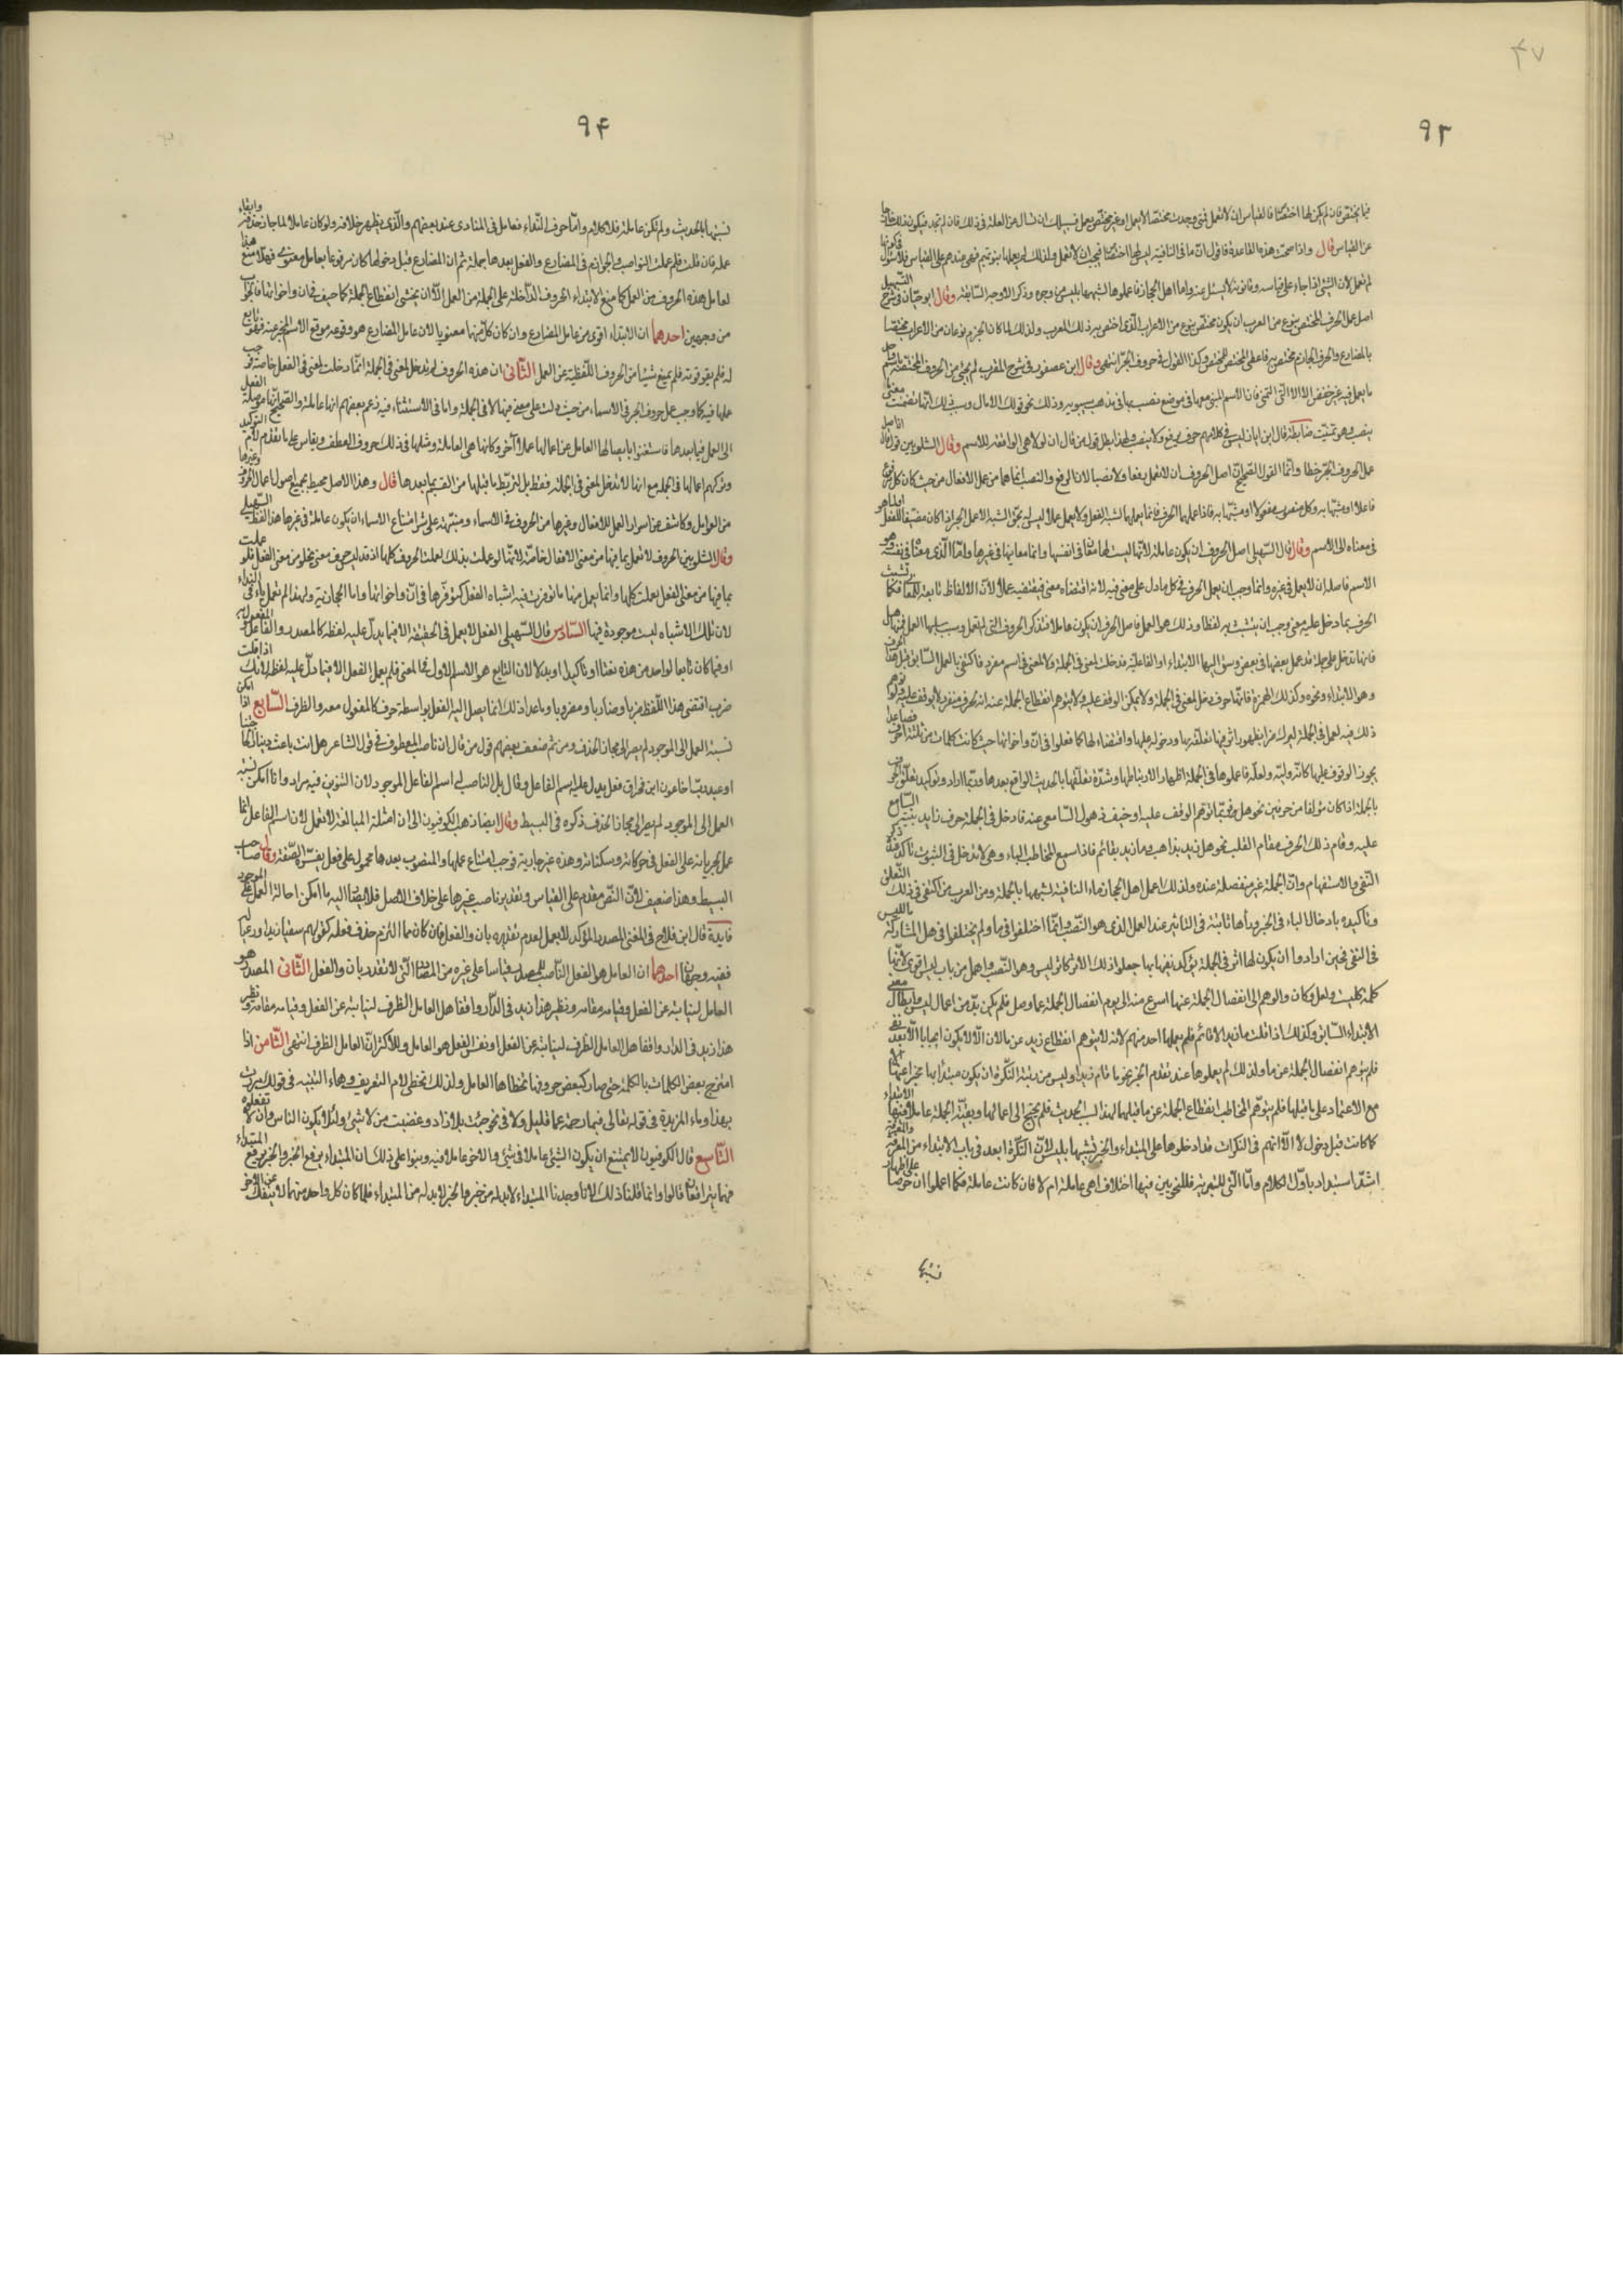 ٤٧
٩٣
بما يختص فان لم يكن لها اختصاص فالقياس ان لا تعمل فمتى وجدت مختصا لا يعمل او غير مختص يعمل فسبيلك ان تسال عن العلة في ذلك فان لم تجد فيكون ذلك خارجا
عن القياس قال واذا صحت هذه القاعدة فاقول ان ما النافية ليس لها اختصاص فيجب ان لا تعمل ولذلك لم يعملها بنو تميم فهي عندهم على القياس فلا سؤال
لم تعمل لان الشئ اذا جاء على قياسه وقانونه لا يسئل عنه واما اهل الحجاز فاعملوها لشبهها بليس من وجوه وذكر الاوجه السابقة وقال ابو حيان في شرح التسهيل
اصل عمل الحرف المختص بنوع من المعرب ان يكون مختصا بنوع من الاعراب الذي اختص به ذلك المعرب ولذلك لما كان الجزم نوعا من الاعراب مختصا
بالمضارع والحرف الجازم مختص به فاعطى المختص للمختص وكذا القول في حروف الجر انتهى وقال ابن عصفور في شرح المقرب لم يجئ من الحروف المختصة باسم واحد
ما يعمل فيه غير خفض الا الا التي للتمني فان الاسم المبني معها في موضع نصب بها في مذهب سيبويه وذلك نحو قولك الا مال وسبب ذلك انها تضمنت معنى
ينصب وهو تمنيت ضابطة قال ابن اياز ليس في كلامهم حرف يرفع ولا ينصب ولهذا بطل قول من قال ان لولا هي الرافعة للاسم وقال الشلوبين
عمل الحروف الجر خطا وانما القول الصحيح اصل الحروف ان لا تعمل رفعا ولا نصبا لان الرفع والنصب انما هما من عمل الافعال من حيث كان كل مرفوع
فاعلا او مشبها به وكل منصوب مفعولا او مشبها به فاذا عملهما الحرف فانما يعملهما لشبه الفعل ولا يعمل عملا ليس له بحق الشبه الا عمل الجر اذا كان مضيفا للفعل او لما هو
في معناه الى الاسم وقال قال السهيلي اصل الحروف ان يكون عاملة لانها ليست لها معان في انفسها وانما معانيها في غيرها واما الذي معناه في نفسه وهو
الاسم فاصله ان لا يعمل في غيره وانما وجب ان يعمل الحرف في كل ما دل على معنى فيه لانه اقتضاه معنى فيقتضيه عملا لان الالفاظ تابعة للمعاني فكما تشبث
الحرف بما دخل عليه معنى وجب ان يتشبث به لفظا وذلك هو العمل فاصل الحرف ان يكون عاملا فنذكر الحروف التي لم تعمل وسبب سلبها العمل فمنها هل
فانها تدخل على جملة قد عمل بعضها في بعض وسبق اليها الابتداء او الفاعلية فدخلت لمعنى في الجملة ولا لمعنى في اسم مفرد فاكتفي بالعمل السابق قبل هذا الحرف
وهو الابتداء ونحوه وكذلك الهمزة فانها حرف دخل لمعنى في الجملة ولا يمكن الوقف عليه ولا يتوهم انقطاع الجملة عنه لانه حرف مفرد لا يوقف عليه ولو توهم
ذلك فيه لعمل في الجملة ليؤكد هذا بظهور اثره فيها تعلقه بها ودخوله عليها واقتضاءه لها كما فعلوا في ان واخواتها حيث كانت كلمات من ثلثة احرف فصاعدا
يجوز الوقوف عليها كانه وليته ولعله فاعملوها في الجملة اظهارا لارتباطها وشدة تعلقها بالحديث الواقع بعدها وربما ارادوا توكيد تعلق الحرف
بالجملة اذا كان مؤلفا من حرفين نحو هل فربما توهم الوقف عليه او خيف ذهول السامع عنه فادخل في الجملة حرف زايد ينبه السامع
عليه وقام ذلك الحرف مقام العمل نحو هل زيد بذاهب وما زيد بقائم فاذا سمع المخاطب الباء وهي لا تدخل في الثبوت تاكد عنده ذكر
النفي والاستفهام وان الجملة غير منفصلة عنده ولذلك اعمل اهل الحجاز ماء النافية لشبهها بالجملة ومن العرب من اكتفى في ذلك التعلق
وتاكيده بادخال الباء في الخبر وراها ثابتة في التاثير عند العمل الذي هو النصب وانما اختلفوا في ما ولم يختلفوا في هل لمشاركة ما لليس
في النفي فحين ارادوا ان يكون لها اثر في الجملة يؤكد تشبثها بها جعلوا ذلك الاثر كاثر ليس وهو النصب واهمل من باب ليس اقوى لانها
كلمة كليت ولعل وكان والوهم الى انفصال الجملة عنها اسرع منه الى توهم انفصال الجملة عما وهل فلم يكن بد من اعمال ليس وابطال معنى
الابتداء السابق وكذلك اذا قلت ما زيد الا قائم فلم يعملها احد منهم لانه لا يتوهم انقطاع زيد عن ما لان الا لا يكون ايجابا الا بعد نفي
فلم يتوهم انفصال الجملة عن ما ولذلك لم يعملوها عند تقدم الخبر نحو ما قام زيد اذ ليس من رتبة النكرة ان يكون مبتدأ بها مخبرا عنها الا
مع الاعتماد على ما قبلها فلم يتوهم المخاطب انقطاع الجملة عن ما قبلها لهذا السبب الحديث فلم يحتج الى اعمالها وبقيت الجملة عاملا فيها الابتداء
كما كانت قبل دخول لا الا انهم في النكرات قد ادخلوها على المبتداء والخبر تشبيها بليس لان النكرة ابعد في باب الابتداء من المعرفة والمعرفة
اشد استبدادا باول الكلام واما التي للتبرئة فللنحويين فيها اختلاف اهي عاملة ام لا فان كانت عاملة فكما اعملوا ان حرصا على اظهار
تشبثها
٩٤
تشبثها بالحديث ولم تكن عاملة فلا كلام واما حرف النداء فعامل في المنادى عند بعضهم والذي يظهر خلافه ولو كان عاملا لما جاز حذفه وابقاء
عمله فان قلت فلم عملت النواصب والجوازم في المضارع والفعل بعدها جملة ثم ان المضارع قبل دخولها كان مرفوعا بعامل معنوي فهلا منع هذا
العامل هذه الحروف من العمل كما منع الابتداء الحروف الداخلة على الجملة من العمل الا ان يخشى انقطاع الجملة كما خيف في ان واخواتها فالجواب
من وجهين احدهما ان الابتداء اقوى من عامل المضارع وان كان كل منهما معنويا لان عامل المضارع هو وقوعه موقع الاسم المخبر عنه فهو تابع
له فلم يقو قوته فلم يمنع شيئا من الحروف اللفظية عن العمل الثاني ان هذه الحروف لم تدخل لمعنى في الجملة انما دخلت لمعنى في الفعل خاصة فوجب
عملها فيه كما وجب عمل حروف الجر في الاسماء من حيث دلت على معنى فيها لا في الجملة واما الا في الاستثناء فيه زعم بعضهم انها عاملة والصحيح انها موصلة الفعل
الى العمل فيما بعدها فاستغنوا بايصالها العامل عن اعمالها عملا آخر وكانها هي العاملة ومثلها في ذلك حروف العطف ويقاس على ما تقدم لام التوكيد
وتركهم اعمالها في الجملة مع انها لا تدخل لمعنى في الجملة فقط بل لتربط ما قبلها من القسم بما بعدها قال وهذا الاصل محيط بجميع اصول اعمال الحروف وغيرها
من العوامل وكاشف عن اسرار العمل للافعال وغيرها من الحروف في الاسماء ومنبهة على سر امتناع الاسماء ان يكون عاملة في غيرها هذا لفظ السهيلي
وقال الشلوبين الحروف لا تعمل بما فيها من معنى الافعال خاصة لانها لو عملت بذلك لعملت الحروف كلها اذ قد ليس حرف معنى يخلو من معنى الفعل فلو عملت
بما فيها من معنى الفعل لعملت كلها وانما يعمل منها ما توفرت فيه اشباه الفعل كتوفرها في ان واخواتها وما الحجازية ولهذا لم تعمل ياء في النداء
لان تلك الاشباه ليست موجودة فيها السادس قال السهيلي الفعل لا يعمل في الحقيقة الا فيما يدل عليه لفظه كالمصدر والفاعل والمفعول به
او فيما كان تابعا لواحد من هذه نعتا او تاكيدا او بدلا لان التابع هو الاسم الاول في المعنى فلم يعمل الفعل الا فيما دل عليه لفظه لانك اذا قلت
ضرب اقتضى هذا اللفظ ضربا وضاربا ومضروبا وما عدا ذلك انما يصل اليه الفعل بواسطة حرف كالمفعول معه والظرف السابع اذا امكن
نسبة العمل الى الموجود لم يصر الى مجاز الحذف ومن ثم ضعف بعضهم قول من قال ان ناصب المعطوف في قول الشاعر هل انت باعث دينار لحاجتنا
او عبد رب اخا عون ابن مخراق فعل يدل عليه اسم الفاعل وقال بل الناصب له اسم الفاعل الموجود لان التنوين فيه مراد واذا امكن نسبة
العمل الى الموجود لم يصر الى مجاز الحذف ذكره في البسيط وقال ايضا ذهب الكوفيون الى ان امثلة المبالغة لا تعمل لان اسم الفاعل انما
عمل لجريانه على الفعل في حركاته وسكناته وهذه غير جارية فوجب امتناع عملها والمنصوب بعدها محمول على فعل يفسره الصفة وقال صاحب
البسيط وهذا ضعيف لان النص مقدم على القياس وتقدير ناصب غيرها على خلاف الاصل فلا يصار اليه ما امكن احالة العمل على الموجود
فايدة قال ابن فلاح في المغني المصدر المؤكد لا يعمل لعدم تقديره بان والفعل فان كان مما التزم حذف فعله كقولهم سقيا زيدا ورعيا له
ففيه وجهان احدهما ان العامل هو الفعل الناصب للمصدر قياسا على غيره من المصادر التي لا تقدر بان والفعل الثاني المصدر هو
العامل لنيابته عن الفعل وقيامه مقامه ونظير هذا زيد في الدار واقفا هل العامل الظرف لنيابته عن الفعل وقيامه مقامه ونظير
هذا زيد في الدار واقفا هل العامل الظرف لنيابته عن الفعل او نفس الفعل هو العامل والاكثر ان العامل الظرف انتهى الثامن اذا
امتزج بعض الكلمات بالكلمة حتى صار كبعض حروفها تخطاها العامل ولذلك تخطى لام التعريف وهاء التنبيه في قولك مررت
بهذا وماء المزيدة في قوله تعالى فبما رحمة عما قليل ولا في نحو جئت بلا زاد وغضبت من لا شئ ولئلا يكون الناس وان لا تفعلوه
التاسع قال الكوفيون لا يمتنع ان يكون الشئ عاملا في شئ والاخر عاملا فيه وبنوا على ذلك ان المبتداء يرفع الخبر والخبر يرفع المبتداء
فهما يترافعان قالوا وانما قلنا ذلك لانا وجدنا المبتداء لابد له من خبر والخبر لابد له من المبتداء فلما كان كل واحد منهما لا ينفك عن الاخر